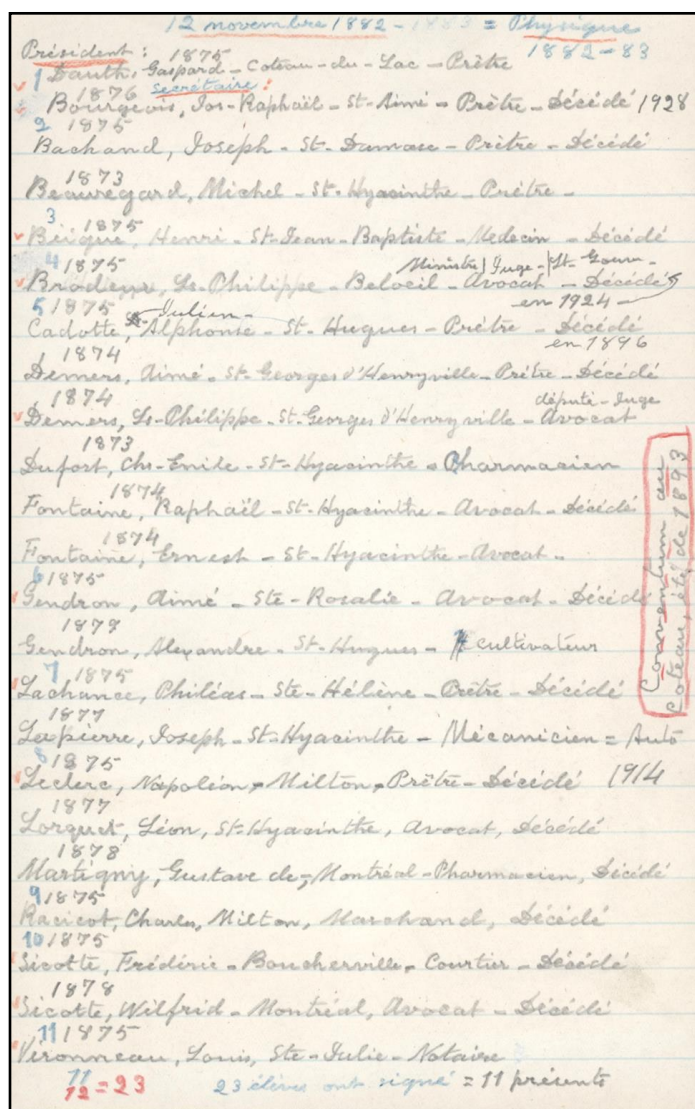 12 novembre 1882 - 1883 = Physique
1882-83
Président : 1875
1 Dauth. Gaspard - Coteau-du-Lac - Prêtre
1876 secrétaire :
Bourgeois, Jos-Raphaël - St-Aimé - Prêtre - Décédé 1928
2 1875
Bachand, Joseph - St-Damase - Prêtre - Décédé
1873
Beauregard, Michel - St-Hyacinthe - Prêtre -
3 1875
Béique, Henri - St-Jean-Baptiste - Médecin - Décédé
4 1875 Ministre | Juge - | St-Gouv -
Brodeur, Ls-Philippe - Beloeil - Avocat - Décédé
5 1875 en 1924 -
Julien -
Cadotte, Alphonse - St-Hugues - Prêtre - Décédé
1874 en 1896
Demers, Aimé - St-Georges d'Henryville - Prêtre - Décédé
1874 député - Juge
Demers, Ls-Philippe - St-Georges d'Henryville - Avocat
1873
Dufort, Chs-Emile - St-Hyacinthe - Pharmacien
1874
Fontaine, Raphaël - St-Hyacinthe - Avocat - Décédé
1874
Fontaine, Ernest - St-Hyacinthe - Avocat -
6 1875
Gendron, Aimé - Ste-Rosalie - Avocat - Décédé
1879
Gendron, Alexandre - St-Hugues - cultivateur
7 1875
Lachance, Philéas - Ste-Hélène - Prêtre - Décédé
1877
Lapierre, Joseph - St-Hyacinthe - Mécanicien = Auto
8 1875
Leclerc, Napoléon, Milton, Prêtre - Décédé 1914
1877
Lorquet, Léon, St-Hyacinthe, Avocat, Décédé
1878
Martigny, Gustave de, Montréal - Pharmacien, Décédé
9 1875
Racicot, Charles, Milton, Marchand, Décédé
10 1875
Sicotte, Frédéric - Boucherville - Courtier - Décédé
1878
Sicotte, Wilfrid - Montréal, Avocat - Décédé
11 1875
Véronneau, Louis, Ste-Julie - Notaire
11
12 = 23 23 élèves ont signé = 11 présents
Conventum au
Coteau, été de 1893